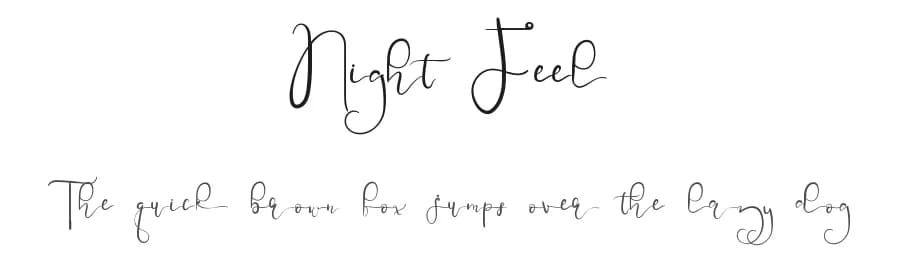 Night Feel
The quick brown fox jumps over the lazy dog